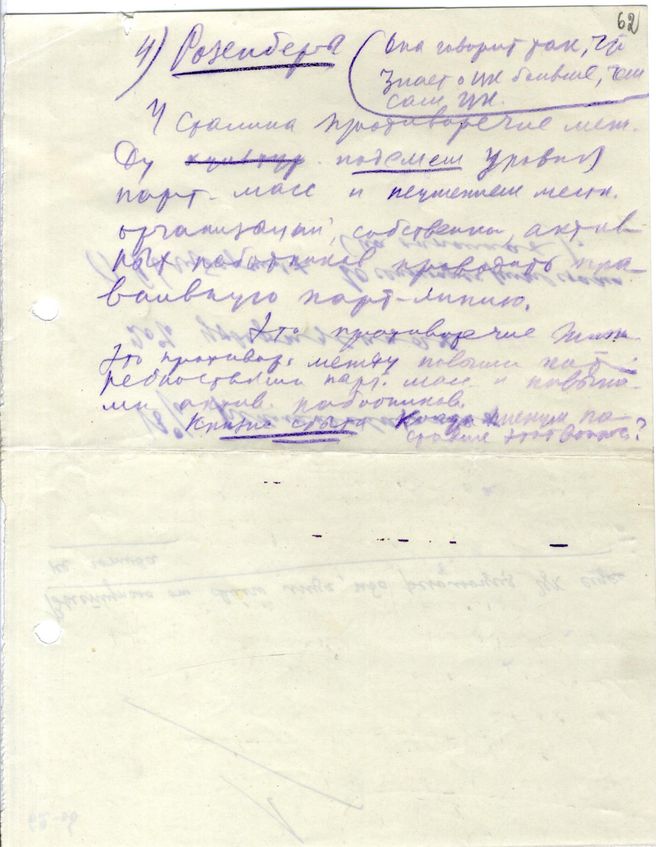 62
4) Розенберг
(Она говорит так, что
знает о ЦК больше, чем
сам ЦК.
У Сталина противоречие меж-
ду подъемом уровня
парт-масс и неумением местн.
организаций, собственно, актив-
ных работников проводить пра-
вильную парт-линию.
Это противоречие
Это противор. между новыми пот-
ребностями парт. масс и
ми актив. работников.
Кризис Когда пленум по-
ставил этот вопрос?